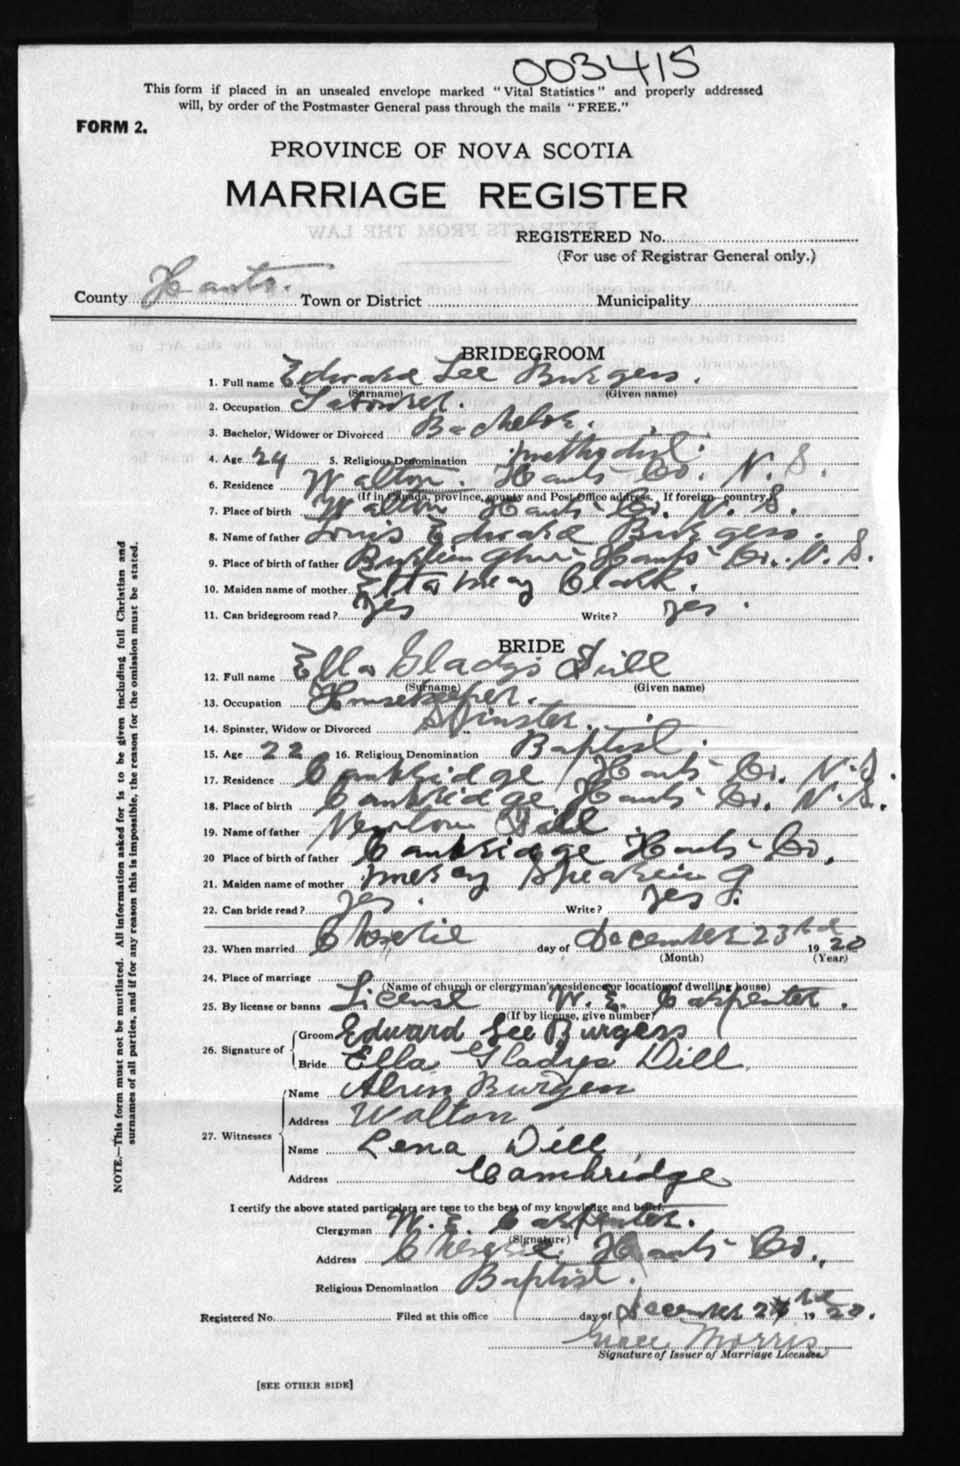 003415
This form if placed in an unsealed envelope marked "Vital Statistics" and properly addressed
will, by order of the Postmaster General pass through the mails "FREE."
FORM 2.
PROVINCE OF NOVA SCOTIA
MARRIAGE REGISTER
REGISTERED No.
(For use of Registrar General only.)
County Hants. Town or District Municipality
BRIDEGROOM
1. Full name Edward Lee Burgess.
(Surname) (Given name)
2. Occupation Labourer.
3. Bachelor, Widower or Divorced Bachelor.
4. Age 24 5. Religious Denomination Methodist.
6. Residence Walton. Hants Co. N. S.
(If in Canada, province, county and Post Office address. If foreign country.)
7. Place of birth Walton Hants Co. N. S.
8. Name of father Louis Edward Burgess.
9. Place of birth of father Hants Co. N. S.
10. Maiden name of mother Etta May Clark.
11. Can bridegroom read? Yes Write? yes.
BRIDE
12. Full name Ella Gladys Dill
(Surname) (Given name)
13. Occupation Housekeeper.
14. Spinster, Widow or Divorced Spinster.
15. Age 22 16. Religious Denomination Baptist.
17. Residence Cambridge Hants Co. N. S.
18. Place of birth Cambridge Hants Co. N. S.
19. Name of father Newton Dill
20 Place of birth of father Cambridge Hants Co.
21. Maiden name of mother
22. Can bride read? yes. Write? yes.
23. When married day of December 23rd 1920
(Month) (Year)
24. Place of marriage
(Name of church or clergyman's residence or location of dwelling house)
25. By license or banns License W. E. Carpenter.
(If by license, give number)
26. Signature of Groom Edward Lee Burgess
Bride Ella Gladys Dill
27. Witnesses Name Burgess
Address Walton
Name Lena Dill
Address Cambridge
I certify the above stated particulars are true to the best of my knowledge and belief.
Clergyman W. E. Carpenter.
(Signature)
Address Hants Co.
Religious Denomination Baptist.
Registered No. Filed at this office day of December 1920.
Grace Morris
Signature of Issuer of Marriage Licenses
[SEE OTHER SIDE]
NOTE.—This form must not be mutilated. All information asked for is to be given including full Christian and
surnames of all parties, and if for any reason this is impossible, the reason for the omission must be stated.